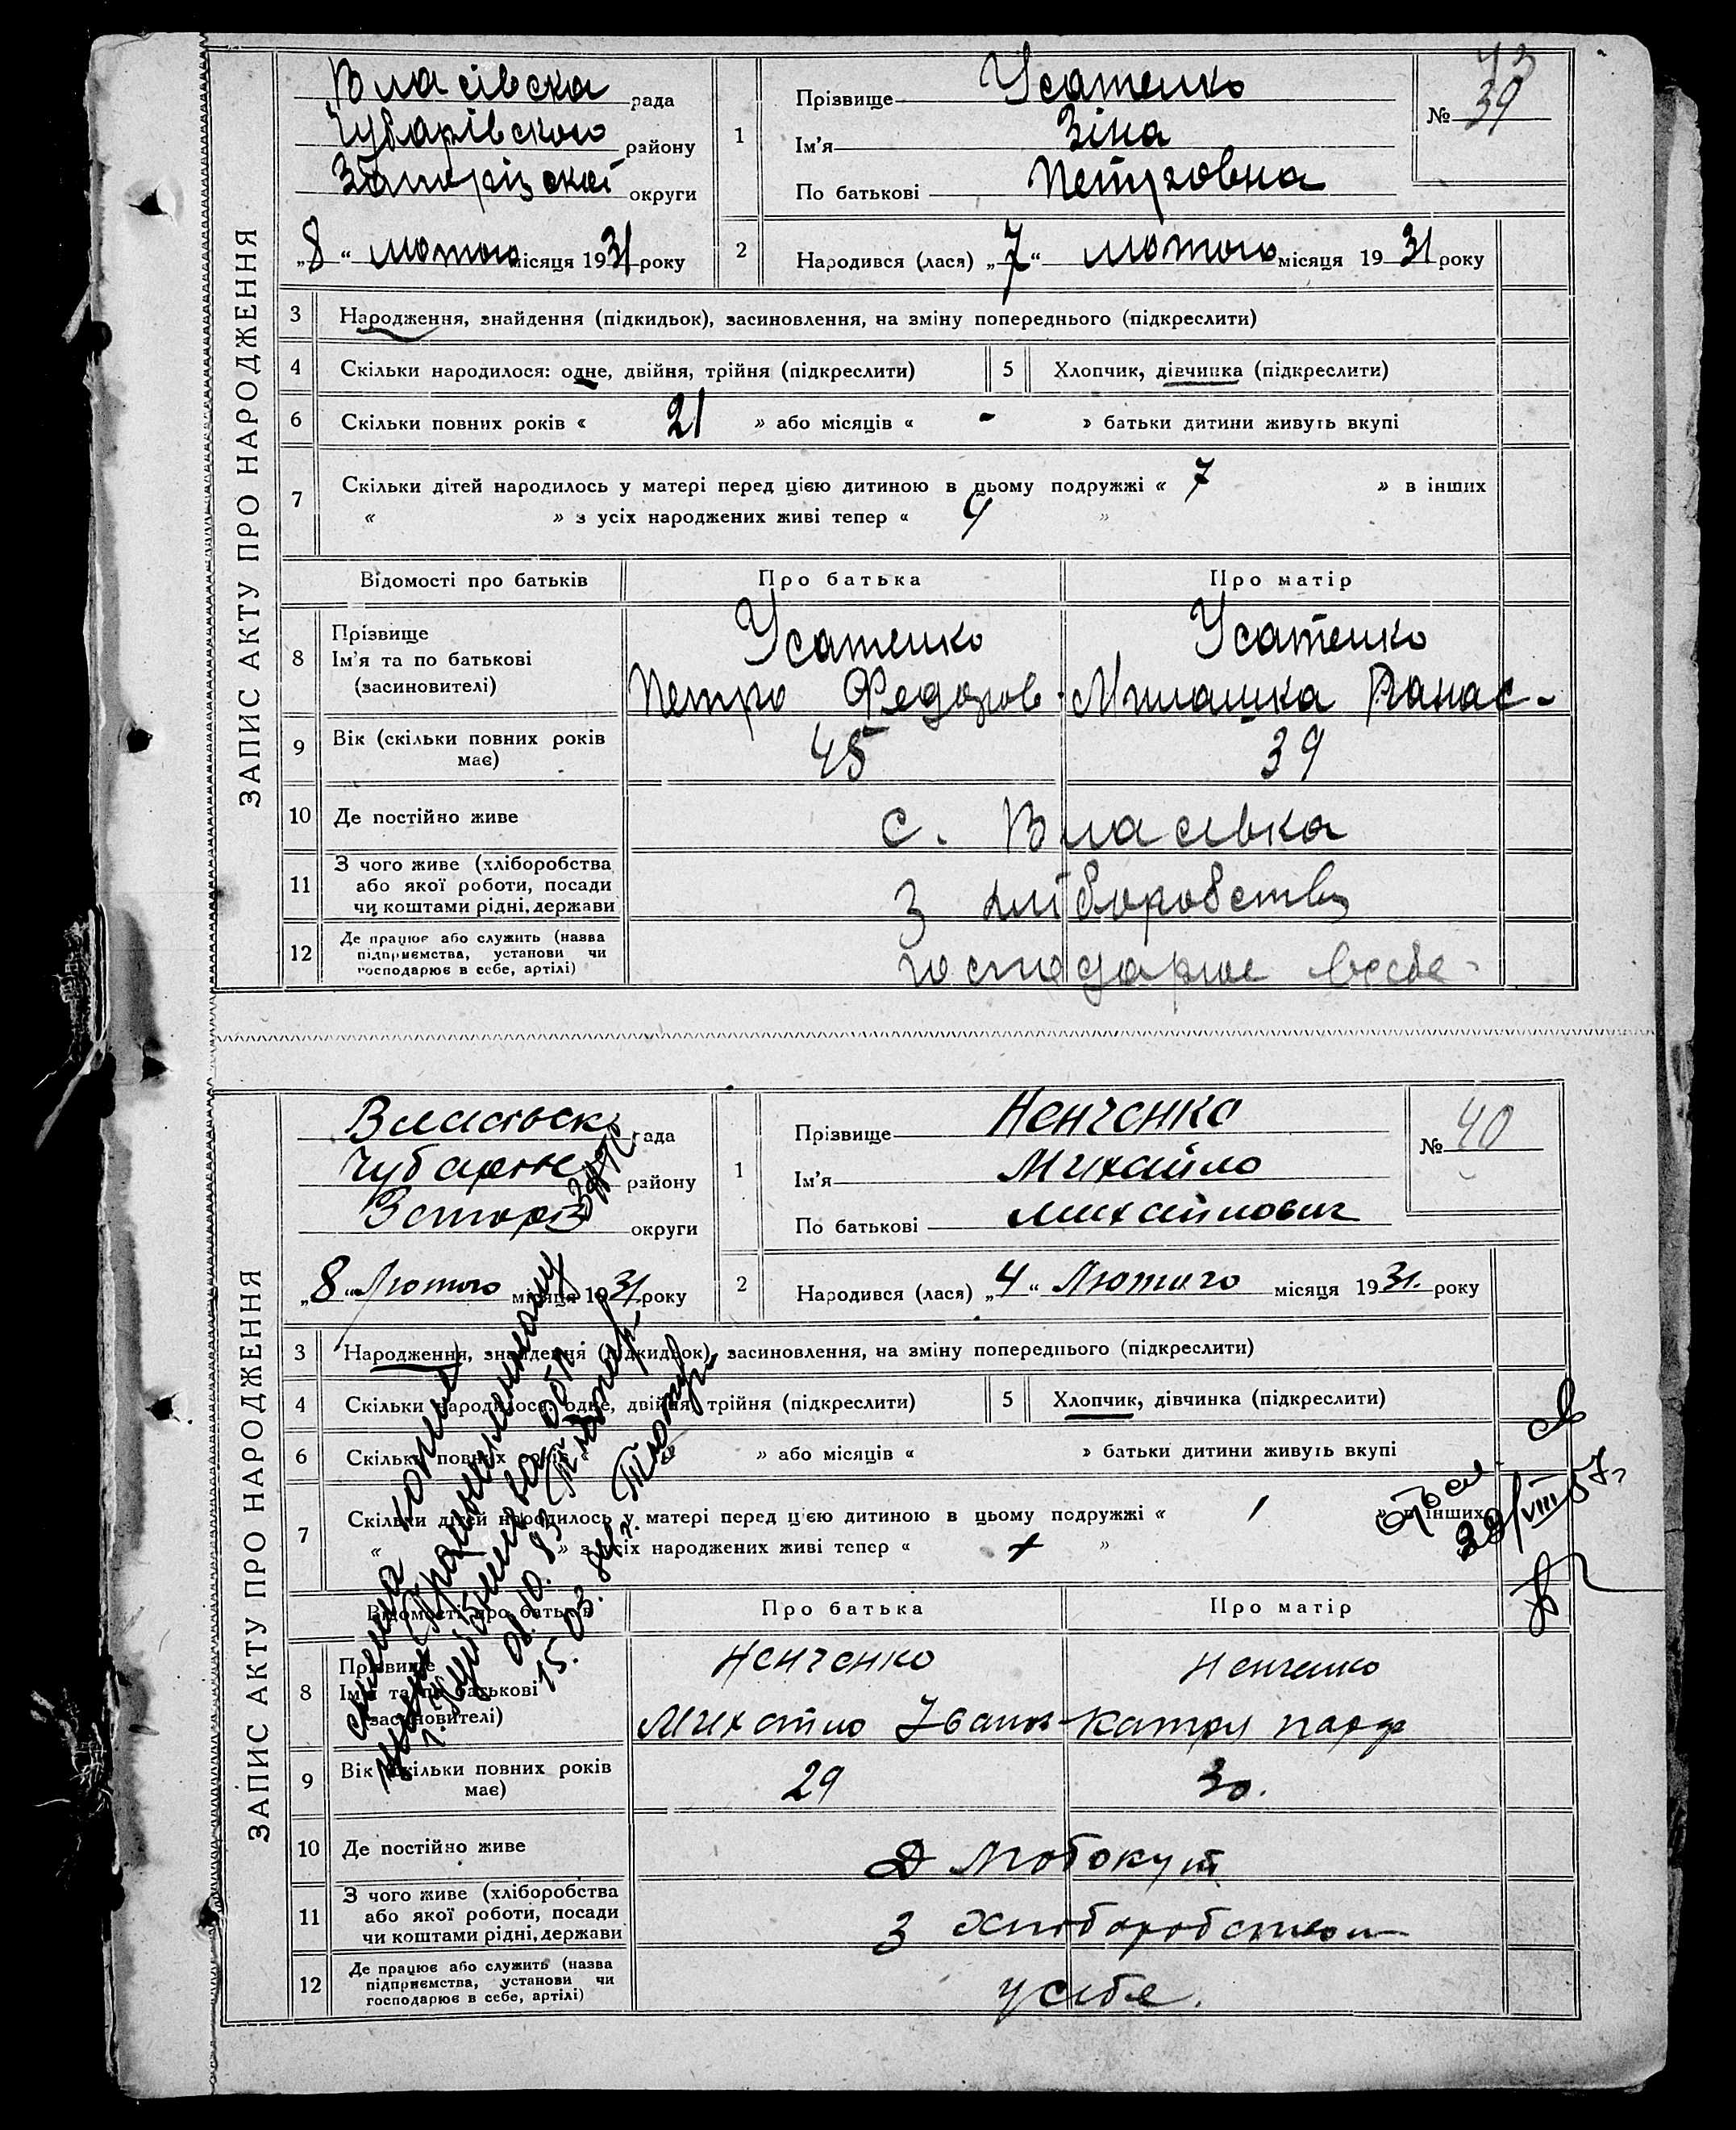 ЗАПИС АКТУ ПРО НАРОДЖЕННЯ
Власівска рада
Чубарівского району
Запорізскої округи
„8“ лютого місяця 1931 року
1
Прізвище Усатенко
Ім’я Зіна
По батькові Петровна
№ 39
43
2
Народився (лася) „7“ лютого місяця 1931 року
3 Народження, знайдення (підкидьок), засиновлення, на зміну попереднього (підкреслити)
4 Скільки народилося: одне, двійня, трійня (підкреслити)
5 Хлопчик, дівчинка (підкреслити)
6 Скільки повних років « 21 » або місяців « - » батьки дитини живуть вкупі
7 Скільки дітей народилось у матері перед цією дитиною в цьому подружжі « 7 » в інших
« » з усіх народжених живі тепер « 4 »
Відомості про батьків Про батька Про матір
8 Прізвище
Ім’я та по батькові
(засиновителі)
Усатенко
Петро Федоров.
Усатенко
Панас-
9 Вік (скільки повних років
має)
45 39
10 Де постійно живе с. Власівка
11 З чого живе (хліборобства
або якої роботи, посади
чи коштами рідні, держави
З хліборобства
12 Де працює або служить (назва
підприємства, установи чи
господарює в себе, артілі)
господарює всебе-
ЗАПИС АКТУ ПРО НАРОДЖЕННЯ
рада
району
округи
„8“ Лютого місяця 1931 року
1
Прізвище Ненченко
Ім’я Михайло
По батькові Михайлович
№ 40
2
Народився (лася) „4“ Лютого місяця 1931. року
3 Народження, знайдення (підкидьок), засиновлення, на зміну попереднього (підкреслити)
4 Скільки народилося: одне, двійня, трійня (підкреслити)
5 Хлопчик, дівчинка (підкреслити)
6 Скільки повних років « » або місяців « » батьки дитини живуть вкупі
7 Скільки дітей народилось у матері перед цією дитиною в цьому подружжі « 1 » в інших
« » з усіх народжених живі тепер « »
30/VIII 57г
Відомості про батьків Про батька Про матір
8 Прізвище
Ім’я та по батькові
(засиновителі)
Ненченко
Михайло Іванов
Ненченко
Катря
9 Вік (скільки повних років
має)
29 30.
10 Де постійно живе
11 З чого живе (хліборобства
або якої роботи, посади
чи коштами рідні, держави
З хліборобства
12 Де працює або служить (назва
підприємства, установи чи
господарює в себе, артілі)
усебе.